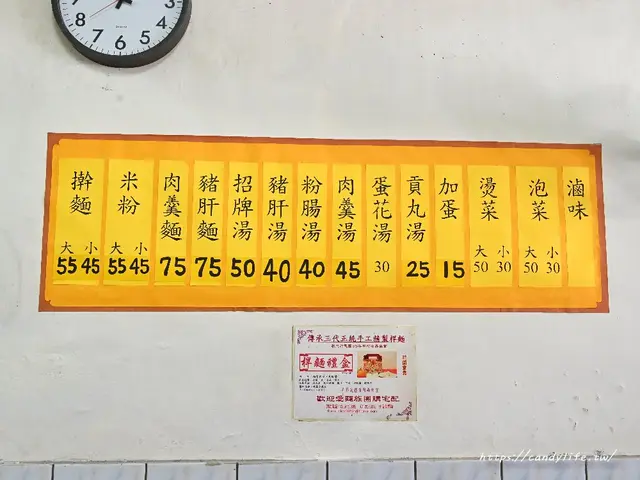 8
7
6
5
4
擀麵
大 小
55 45
米粉
大 小
55 45
肉羹麵
75
豬肝麵
75
招牌湯
50
豬肝湯
40
粉腸湯
40
肉羹湯
45
蛋花湯
30
貢丸湯
25
加蛋
15
燙菜
大 小
50 30
泡菜
大 小
50 30
滷味
傳承三代正統手工精製桿麵
桿麵禮盒
歡迎受麵族團購宅配
https://candylife.tw/